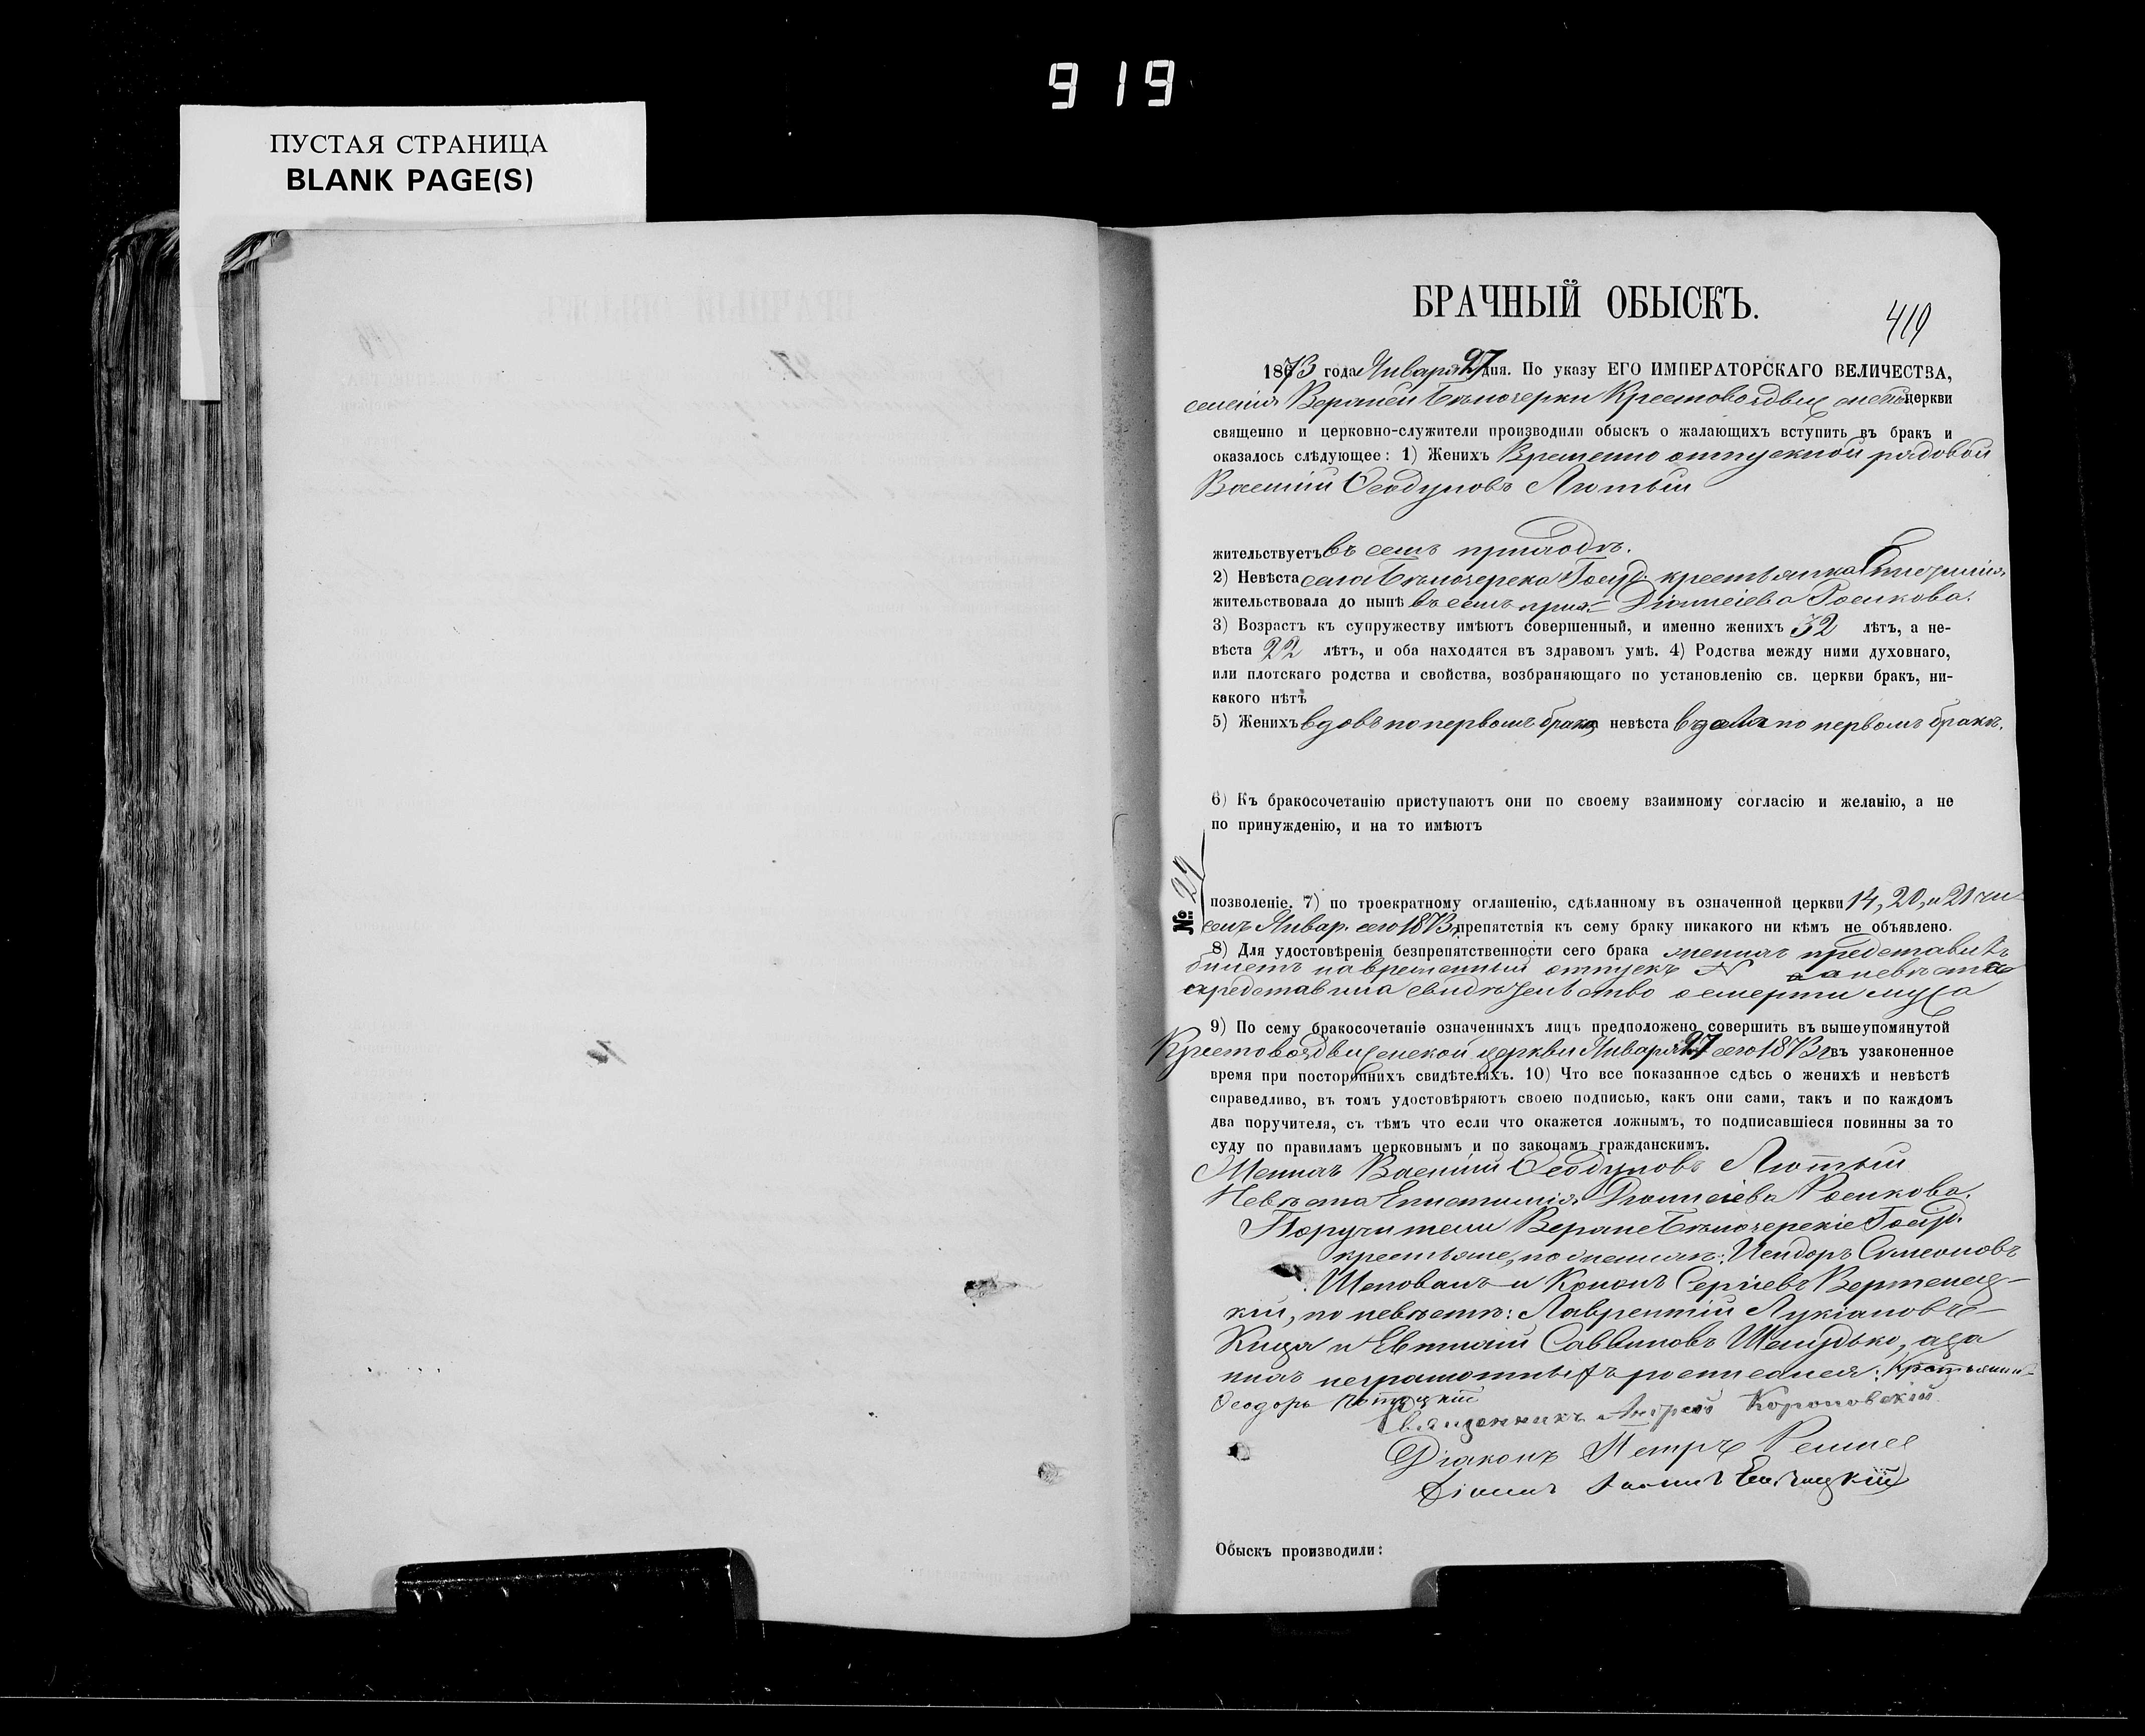 919
ПУСТАЯ СТРАНИЦА
BLANK PAGE(S)
БРАЧНЫЙ ОБЫСКЪ.
419
1873 года Января 27 дня. По указу ЕГО ИМПЕРАТОРСКАГО ВЕЛИЧЕСТВА,
селенія Верхней Бѣлозерки Крестовоздвиженской церкви
священно и церковно-служители производили обыскъ о жалающихъ вступить въ бракъ и
оказалось слѣдующее: 1) Женихъ Временно отпускной рядовой
Василій Ѳеодуловъ Лютый
жительствуетъ въ семъ приходѣ.
2) Невѣста села Бѣлозерска Госуд. крестьянка Епистимія
жительствовала до нынѣ въ семъ прих. Діонисіева Росикова.
3) Возрастъ къ супружеству имѣютъ совершенный, и именно женихъ 32 лѣтъ, а не-
вѣста 22 лѣтъ, и оба находятся въ здравомъ умѣ. 4) Родства между ними духовнаго,
или плотскаго родства и свойства, возбраняющаго по установленію св. церкви бракъ, ни-
какого нѣтъ
5) Женихъ вдовъ по первомъ бракѣ невѣста вдова по первомъ бракѣ.
6) Къ бракосочетанію приступаютъ они по своему взаимному согласію и желанію, а не
по принужденію, и на то имѣютъ
№: 27
позволеніе. 7) по троекратному оглашенію, сдѣланному въ означенной церкви 14, 20, и 21 чи-
селъ Январ. сего 1873 препятствія къ сему браку никакого ни кѣмъ не объявлено.
8) Для удостовѣренія безпрепятственности сего брака женихъ представилъ
билетъ на временный отпускъ N а невѣста
представила свидѣтельство о смерти мужа
9) По сему бракосочетаніе означенныхъ лицъ предположено совершить въ вышеупомянутой
Крестовоздвиженской церкви Января 27 сего 1873 г. въ узаконенное
время при постороннихъ свидѣтеляхъ. 10) Что все показанное сдѣсь о женихѣ и невѣстѣ
справедливо, въ томъ удостовѣряютъ своею подписью, какъ они сами, такъ и по каждомъ
два поручителя, съ тѣмъ что если что окажется ложнымъ, то подписавшіеся повинны за то
суду по правиламъ церковнымъ и по законамъ гражданскимъ.
Женихъ Василій Ѳеодуловъ Лютый
Невѣста Епистимія Діонисіева Росикова.
Поручители Верхне Бѣлозерскіе Госуд.
крестьяне, по женихѣ: Исидоръ Симеоновъ
Шаповалъ и Кононъ Сергіевъ Вертелец-
кій, по невѣстѣ: Лаврентій Лукіановъ
Кица и Евтихій Саввиновъ Шелудько, а за
нихъ неграмотныхъ росписался: Крестьянинъ
Ѳеодоръ
Священникъ Андрей Короповскій
Діаконъ Петръ
Обыскъ производили: